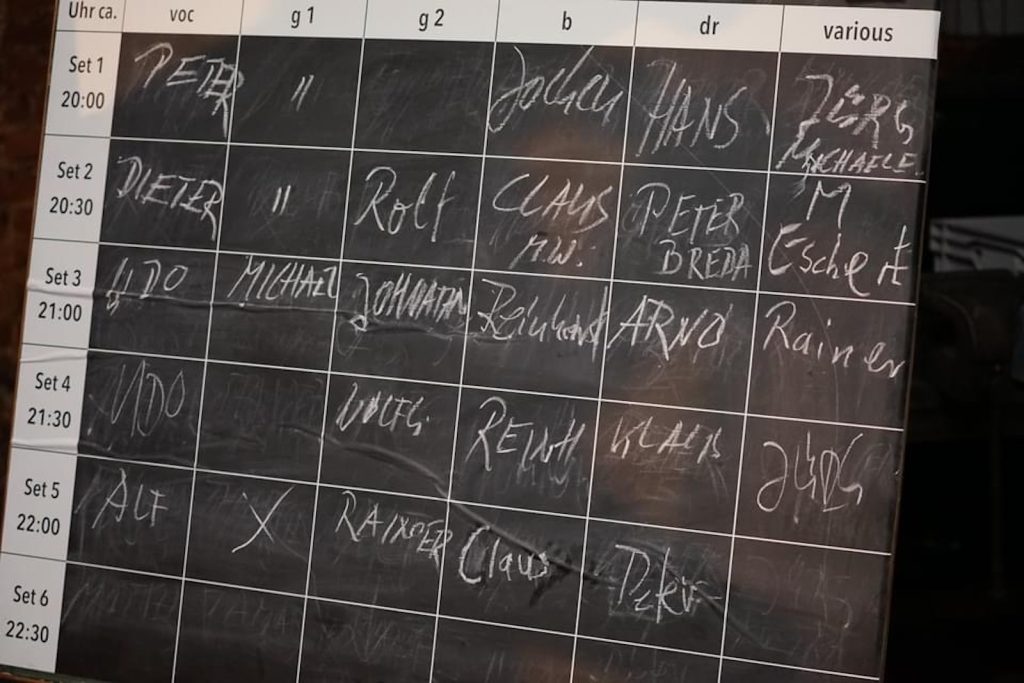 Uhr ca. voc g 1 g 2 b dr various
Set 1
20:00
PETER " Jochen HANS JÖRG
MICHAELE
Set 2
20:30
DIETER " Rolf CLAUS PETER M
M.W. BREDA Eschert
Set 3
21:00
UDO MICHAEL JOHNATAN Reinhard ARNO Rainer
Set 4
21:30
UDO WOLFG. REINH KLAUS JÜRG
Set 5
22:00
ALF X RAINER Claus
Set 6
22:30